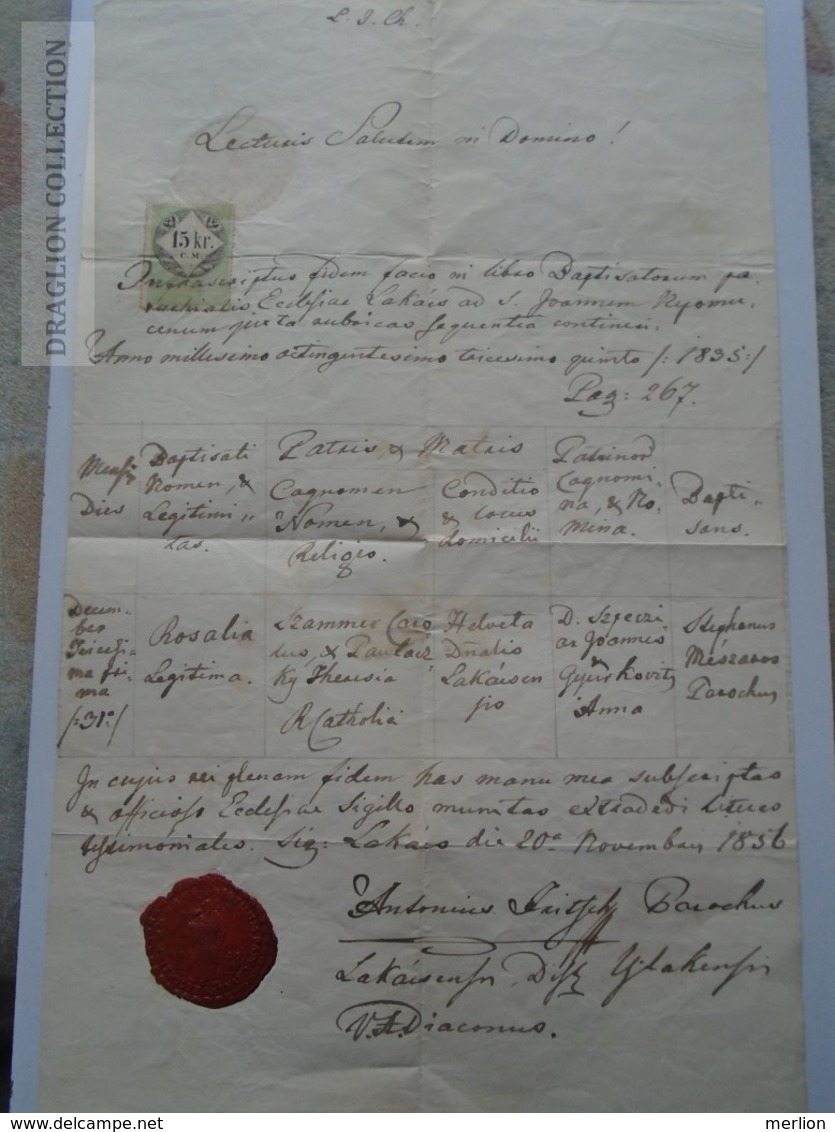 DRAGLION COLLECTION
L. J. Ch.
Lecturis Salutem in Domino!
15 kr.
C. M.
Infrascriptus fidem facio in libro Baptisatorum pa-
rochialis Ecclesiae Lakács ad S. Joannem Nepomu-
cenum juxta rubricas sequentia contineri.
Anno millesimo octingentesimo tricesimo quinto /: 1835 :/
Pag: 267.
Mensis
Dies
Baptisati
Nomen, &
Legitimi-
tas.
Patris & Matris
Cognomen
Nomen, &
Religio.
Conditio
& locus
domicilii
Patrinor
Cognomi-
na, & No-
mina.
Bapti-
sans.
Decem-
ber
Tricesi-
ma pri-
ma
/: 31a :/
Rosalia
Legitima.
Szammer Caro
lus, &
Theresia
R Catholici
Helveta
Dnalis
Lakácsen-
sis
D.
Joannes
&
Anna
Stephanus
Mészaros
Parochus
In cujus rei plenam fidem has manu mea subscriptas
& officioso Ecclesiae Sigillo munitas extradedi
testimoniales. Sig: Lakács die 20a Novembris 1856
Antonius Fritsch Parochus
Lakácsensis, Ujlakensis
V. A. Diaconus.
merlion
delcampe.net